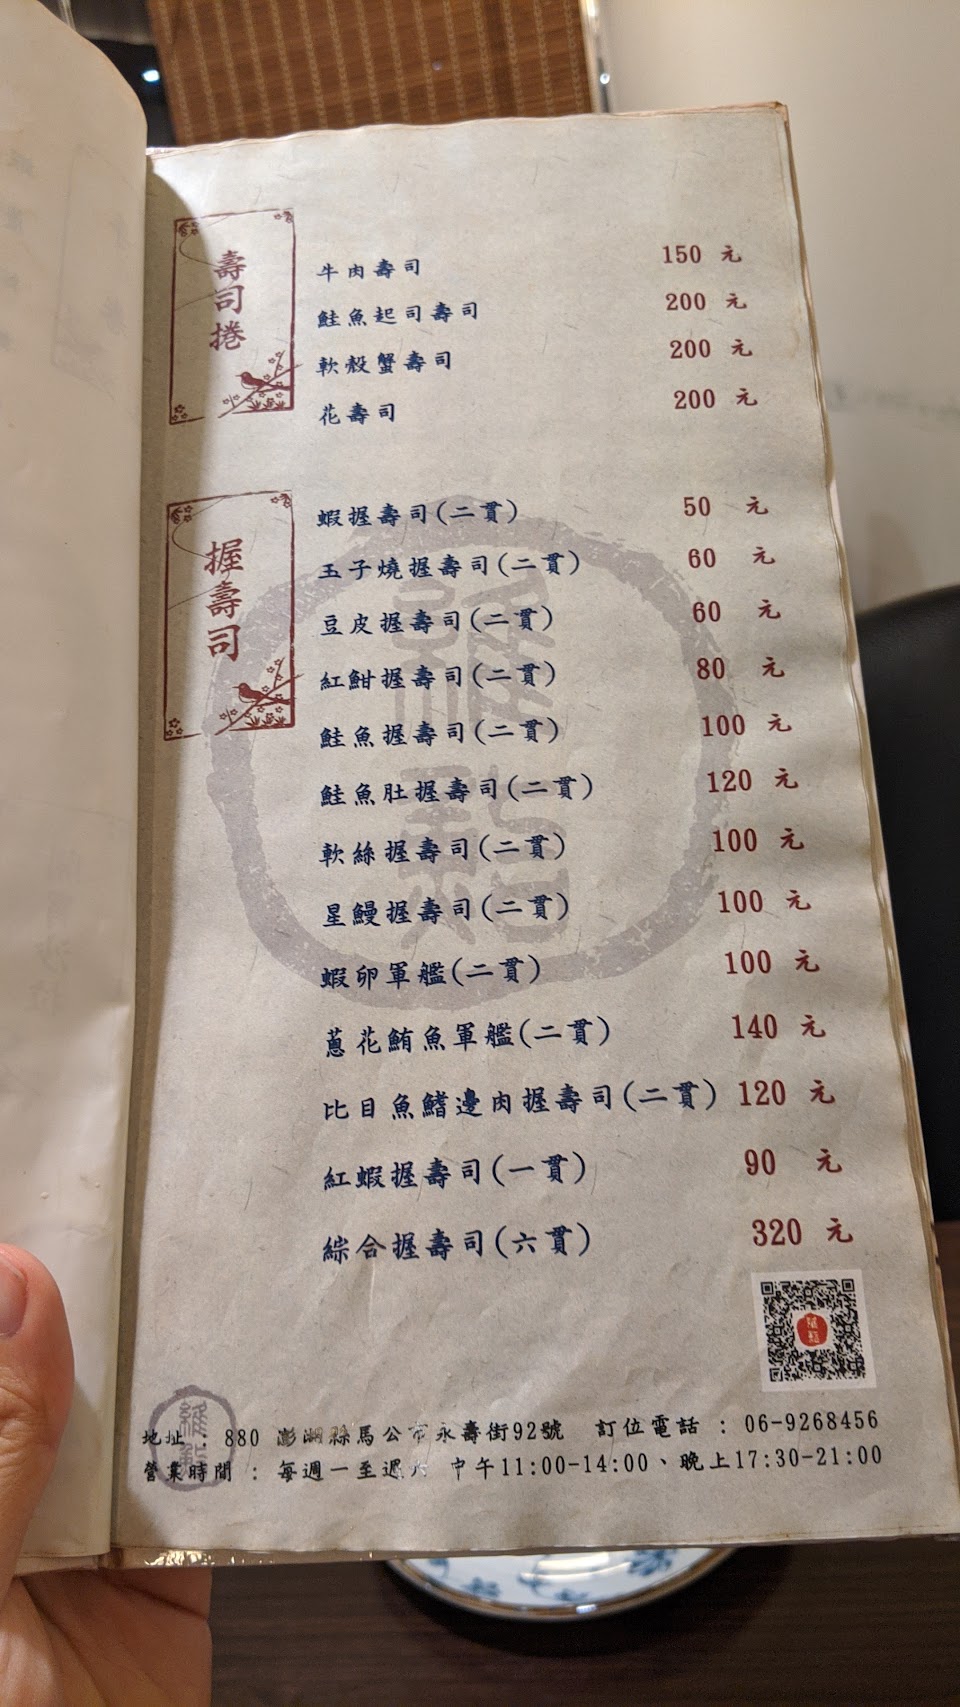 壽司捲
牛肉壽司 150 元
鮭魚起司壽司 200 元
軟殼蟹壽司 200 元
花壽司 200 元
握壽司
蝦握壽司(二貫) 50 元
玉子燒握壽司(二貫) 60 元
豆皮握壽司(二貫) 60 元
紅魽握壽司(二貫) 80 元
鮭魚握壽司(二貫) 100 元
鮭魚肚握壽司(二貫) 120 元
軟絲握壽司(二貫) 100 元
星鰻握壽司(二貫) 100 元
蝦卵軍艦(二貫) 100 元
蔥花鮪魚軍艦(二貫) 140 元
比目魚鰭邊肉握壽司(二貫) 120 元
紅蝦握壽司(一貫) 90 元
綜合握壽司(六貫) 320 元
地址 : 880 澎湖縣馬公市永壽街92號 訂位電話 : 06-9268456
營業時間 : 每週一至週六 中午11:00-14:00、晚上17:30-21:00